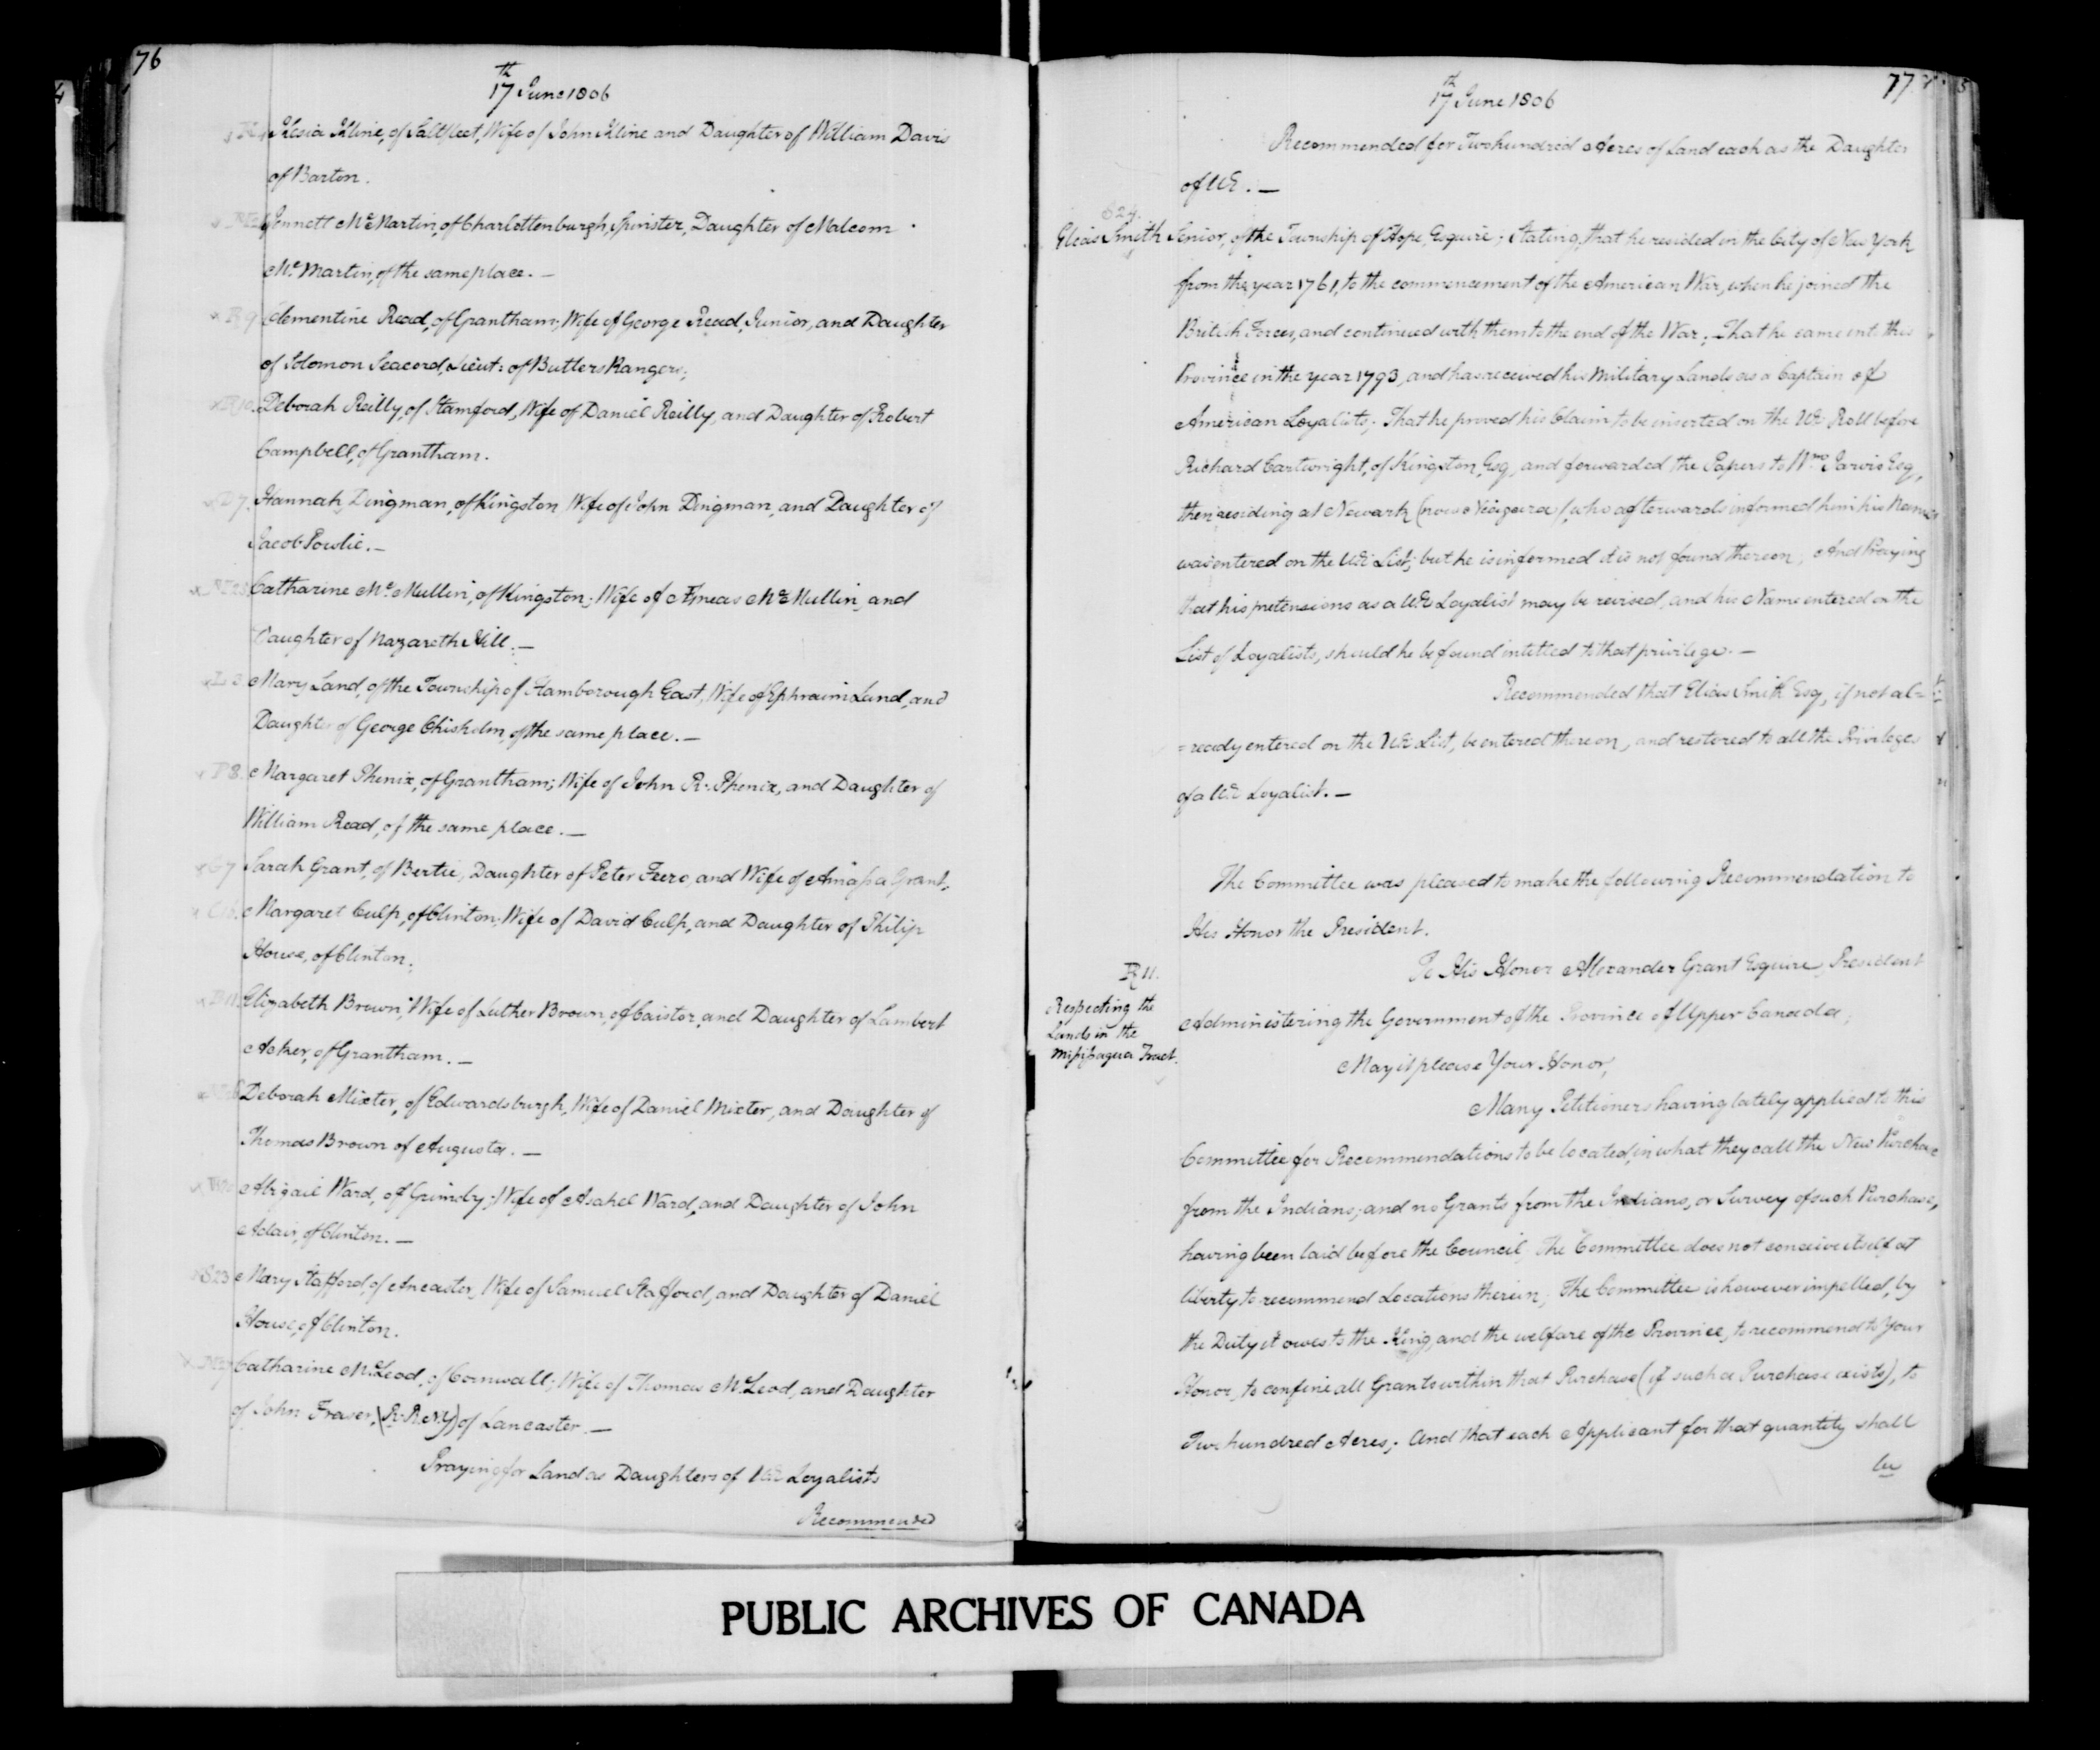 76
17th June 1806
Kesia Kline, of Saltfleet, Wife of John Kline and Daughter of William Davis
of Barton.
Jennett Mc.Martin, of Charlottenburgh, Spinster, Daughter of Malcom
Mc.Martin, of the same place. —
R 9 Clementine Read, of Grantham; Wife of George Read, Junior, and Daughter
of Solomon Seacord, Lieut: of Butlers Rangers;
R 10. Deborah Reilly, of Stamford, Wife of Daniel Reilly, and Daughter of Robert
Campbell, of Grantham.
D 7. Hannah Dingman, of Kingston, Wife of John Dingman, and Daughter of
Jacob Powlie. —
Catharine Mc.Mullin, of Kingston; Wife of Æneas Mc.Mullin, and
Daughter of Nazareth Hill. —
L 3 Mary Land, of the Township of Flamborough East, Wife of Ephraim Land, and
Daughter of George Chisholm, of the same place. —
P 8. Margaret Phenix, of Grantham; Wife of John R. Phenix, and Daughter of
William Read, of the same place. —
G 7 Sarah Grant, of Bertie, Daughter of Peter Feero, and Wife of Amasa Grant,
Margaret Culp, of Clinton; Wife of David Culp, and Daughter of Philip
House, of Clinton;
B 11. Elizabeth Brown, Wife of Luther Brown, of Caistor, and Daughter of Lambert
Acker, of Grantham. —
Deborah Mixter, of Edwardsburgh, Wife of Daniel Mixter, and Daughter of
Thomas Brown of Augusta. —
Abigail Ward, of Grimsby; Wife of Asahel Ward, and Daughter of John
Adair, of Clinton. —
S 23 Mary Stafford, of Ancaster, Wife of Samuel Stafford, and Daughter of Daniel
House, of Clinton.
Catharine McLeod, of Cornwall; Wife of Thomas McLeod, and Daughter
of John Fraser, (R. R. N.Y) of Lancaster. —
Praying for Land as Daughters of UE Loyalists
Recommended
77
17th June 1806
Recommended for Two hundred Acres of Land each as the Daughter
of UE. —
S 24.
Elias Smith Senior, of the Township of Hope, Esquire; Stating, that he resided in the City of New York
from the year 1761, to the commencement of the American War, when he joined the
British Forces, and continued with them to the end of the War; That he came into this
Province in the year 1793, and has received his Military Lands as a Captain of
American Loyalists; That he proved his Claim to be inserted on the UE Roll before
Richard Cartwright, of Kingston, Esq, and forwarded the Papers to Wm. Jarvis Esq,
then residing at Newark (now Niagara), who afterwards informed him his Name
was entered on the UE List; but he is informed it is not found thereon; And Praying
that his pretensions as a UE Loyalist may be revised, and his Name entered on the
List of Loyalists, should he be found intitled to that privilege. —
Recommended that Elias Smith Esq, if not al=
=ready entered on the UE List, be entered thereon, and restored to all the Privileges
of a UE Loyalist. —
The Committee was pleased to make the following Recommendation to
His Honor the President.
To His Honor Alexander Grant Esquire, President
R 11.
Respecting the
Lands in the
Missisagua Tract.
Administering the Government of the Province of Upper Canada;
May it please Your Honor,
Many Petitioners having lately applied to this
Committee for Recommendations to be located, in what they call the New Purchase
from the Indians; and no Grants from the Indians, or Survey of such Purchase,
having been laid before the Council, The Committee does not conceive itself at
liberty to recommend Locations therein; The Committee is however impelled, by
the Duty it owes to the King, and the welfare of the Province, to recommend to Your
Honor, to confine all Grants within that Purchase (if such a Purchase exists), to
Two hundred Acres; And that each Applicant for that quantity shall
be
PUBLIC ARCHIVES OF CANADA